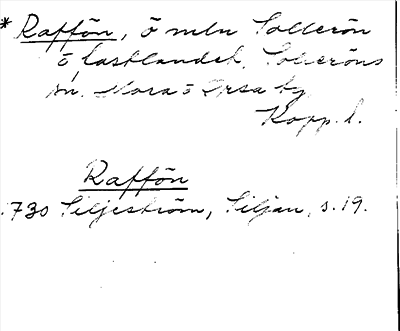 * Raffön, ö mln Sollerön
o. fastlandet, Solleröns
sn. Mora o Orsa tg
Kopp. l.
Raffön
730 Siljeström, Siljan, s. 19.